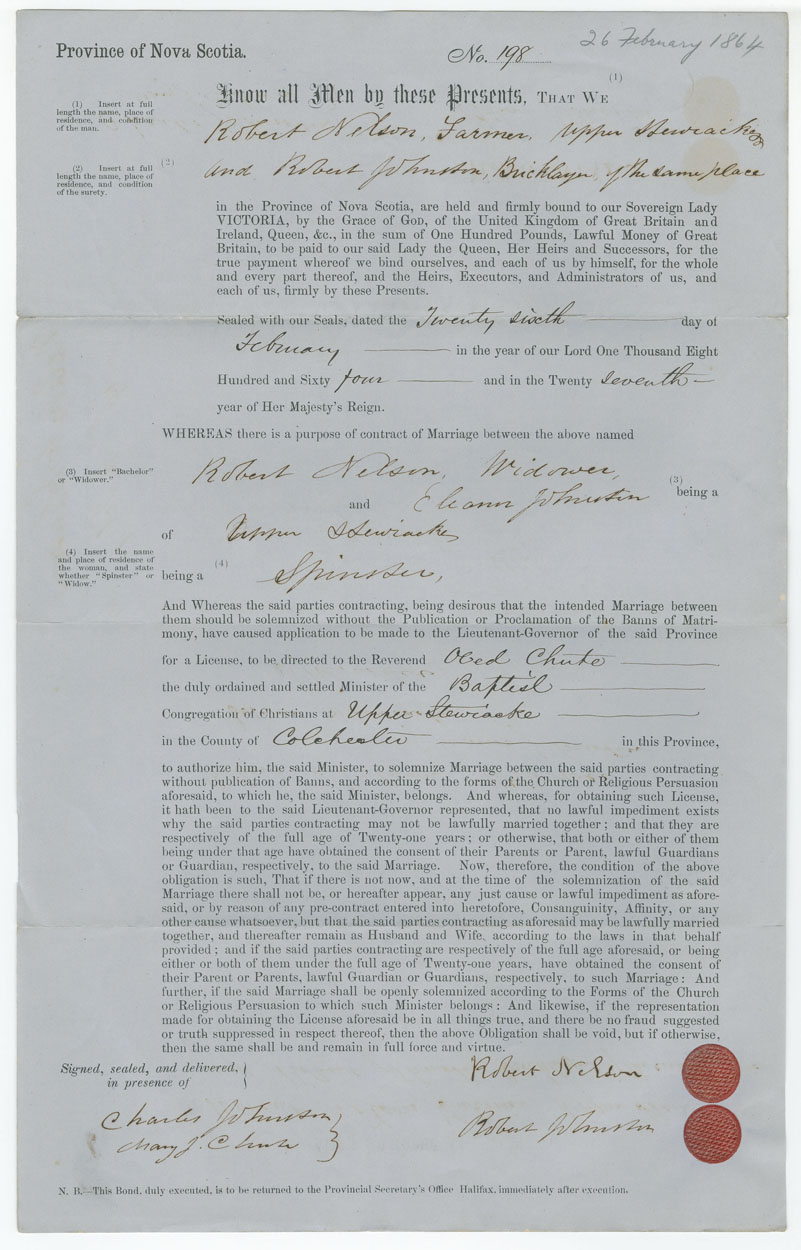 26 February 1864
Province of Nova Scotia.
No. 198
(1)
Know all Men by these Presents, THAT WE
(1) Insert at full
length the name, place of
residence, and condition
of the man.
Robert Nelson, Farmer, Upper Stewiacke
(2) Insert at full
length the name, place of
residence, and condition
of the surety.
(2)
and Robert Johnston, Bricklayer, of the same place
in the Province of Nova Scotia, are held and firmly bound to our Sovereign Lady
VICTORIA, by the Grace of God, of the United Kingdom of Great Britain and
Ireland, Queen, &c., in the sum of One Hundred Pounds, Lawful Money of Great
Britain, to be paid to our said Lady the Queen, Her Heirs and Successors, for the
true payment whereof we bind ourselves, and each of us by himself, for the whole
and every part thereof, and the Heirs, Executors, and Administrators of us, and
each of us, firmly by these Presents.
Sealed with our Seals, dated the Twenty sixth day of
February in the year of our Lord One Thousand Eight
Hundred and Sixty four and in the Twenty seventh
year of Her Majesty's Reign.
WHEREAS there is a purpose of contract of Marriage between the above named
(3) Insert "Bachelor"
or "Widower."
Robert Nelson, Widower,
(3)
being a
and Eleanor Johnston
of Upper Stewiacke
(4) Insert the name
and place of residence of
the woman, and state
whether "Spinster" or
"Widow."
(4)
being a Spinster,
And Whereas the said parties contracting, being desirous that the intended Marriage between
them should be solemnized without the Publication or Proclamation of the Banns of Matri-
mony, have caused application to be made to the Lieutenant-Governor of the said Province
for a License, to be directed to the Reverend Obed Chute
the duly ordained and settled Minister of the Baptist
Congregation of Christians at Upper Stewiacke
in the County of Colchester in this Province,
to authorize him, the said Minister, to solemnize Marriage between the said parties contracting
without publication of Banns, and according to the forms of the Church or Religious Persuasion
aforesaid, to which he, the said Minister, belongs. And whereas, for obtaining such License,
it hath been to the said Lieutenant-Governor represented, that no lawful impediment exists
why the said parties contracting may not be lawfully married together; and that they are
respectively of the full age of Twenty-one years; or otherwise, that both or either of them
being under that age have obtained the consent of their Parents or Parent, lawful Guardians
or Guardian, respectively, to the said Marriage. Now, therefore, the condition of the above
obligation is such, That if there is not now, and at the time of the solemnization of the said
Marriage there shall not be, or hereafter appear, any just cause or lawful impediment as afore-
said, or by reason of any pre-contract entered into heretofore, Consanguinity, Affinity, or any
other cause whatsoever, but that the said parties contracting as aforesaid may be lawfully married
together, and thereafter remain as Husband and Wife, according to the laws in that behalf
provided; and if the said parties contracting are respectively of the full age aforesaid, or being
either or both of them under the full age of Twenty-one years, have obtained the consent of
their Parent or Parents, lawful Guardian or Guardians, respectively, to such Marriage: And
further, if the said Marriage shall be openly solemnized according to the Forms of the Church
or Religious Persuasion to which such Minister belongs: And likewise, if the representation
made for obtaining the License aforesaid be in all things true, and there be no fraud suggested
or truth suppressed in respect thereof, then the above Obligation shall be void, but if otherwise,
then the same shall be and remain in full force and virtue.
Signed, sealed, and delivered,
in presence of
Robert Nelson
Charles Johnston
Mary J. Chute
Robert Johnston
N. B.—This Bond, duly executed, is to be returned to the Provincial Secretary's Office Halifax, immediately after execution.